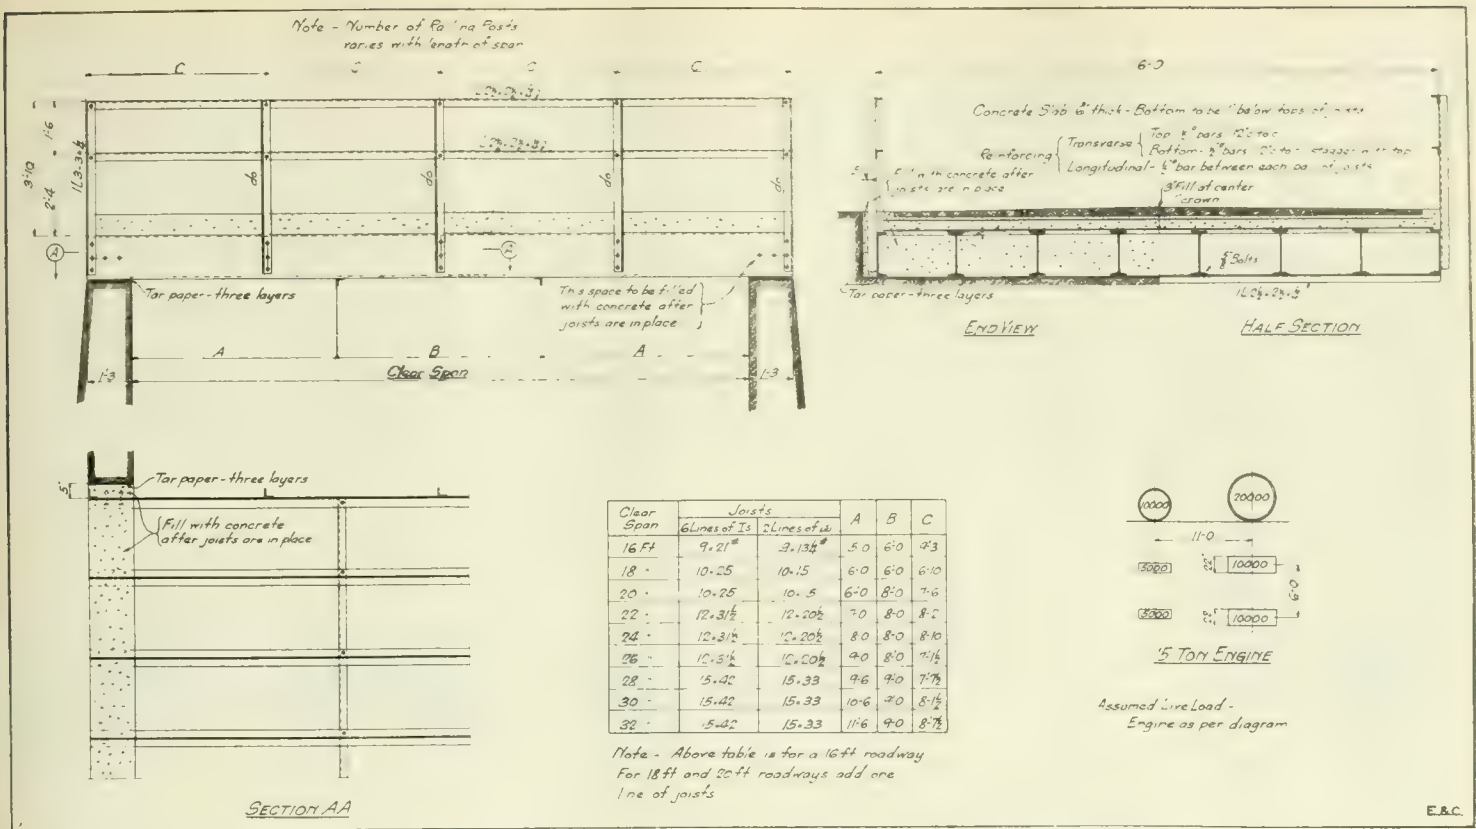 Note - Number of Posts
varies with of span
C
C
C
C
1'-6
3'-10
2'-4
1L 3-3-¼
do
do
do
do
A
Tar paper - three layers
This space to be filled
with concrete after
joists are in place
A
B
A
Clear Span
1'-3
1'-3
6-0
Concrete Slab thick - Bottom to be below tops of
Reinforcing
Transverse
Top bars
Bottom - bars top
Longitudinal - bar between each of joists
with concrete after
joists are in place
3" Fill at center
crown
Bolts
Tar paper - three layers
END VIEW
HALF SECTION
5"
Tar paper - three layers
Fill with concrete
after joists are in place
SECTION AA
Clear Span
Joists
A
B
C
6 Lines of Is
2 Lines of
16 Ft
9-21#
9-13¼#
5-0
6-0
9-3
18 "
10-25
10-15
6-0
6-0
6-10
20 "
10-25
6-0
8-0
7-6
22 "
12-31½
12-20½
7-0
8-0
8-2
24 "
12-31½
12-20½
8-0
8-0
8-10
26 "
12-31½
12-20½
9-0
8-0
28 "
15-42
15-33
9-6
9-0
7-7½
30 "
15-42
15-33
10-6
9-0
8-1½
32 "
15-42
15-33
11-6
9-0
8-7½
Note - Above table is for a 16 ft roadway
For 18 ft and 20 ft roadways add one
line of joists
10000
20000
11-0
5000
22"
10000
6-0
5000
22"
10000
15 TON ENGINE
Assumed Live Load -
Engine as per diagram
E.&C.